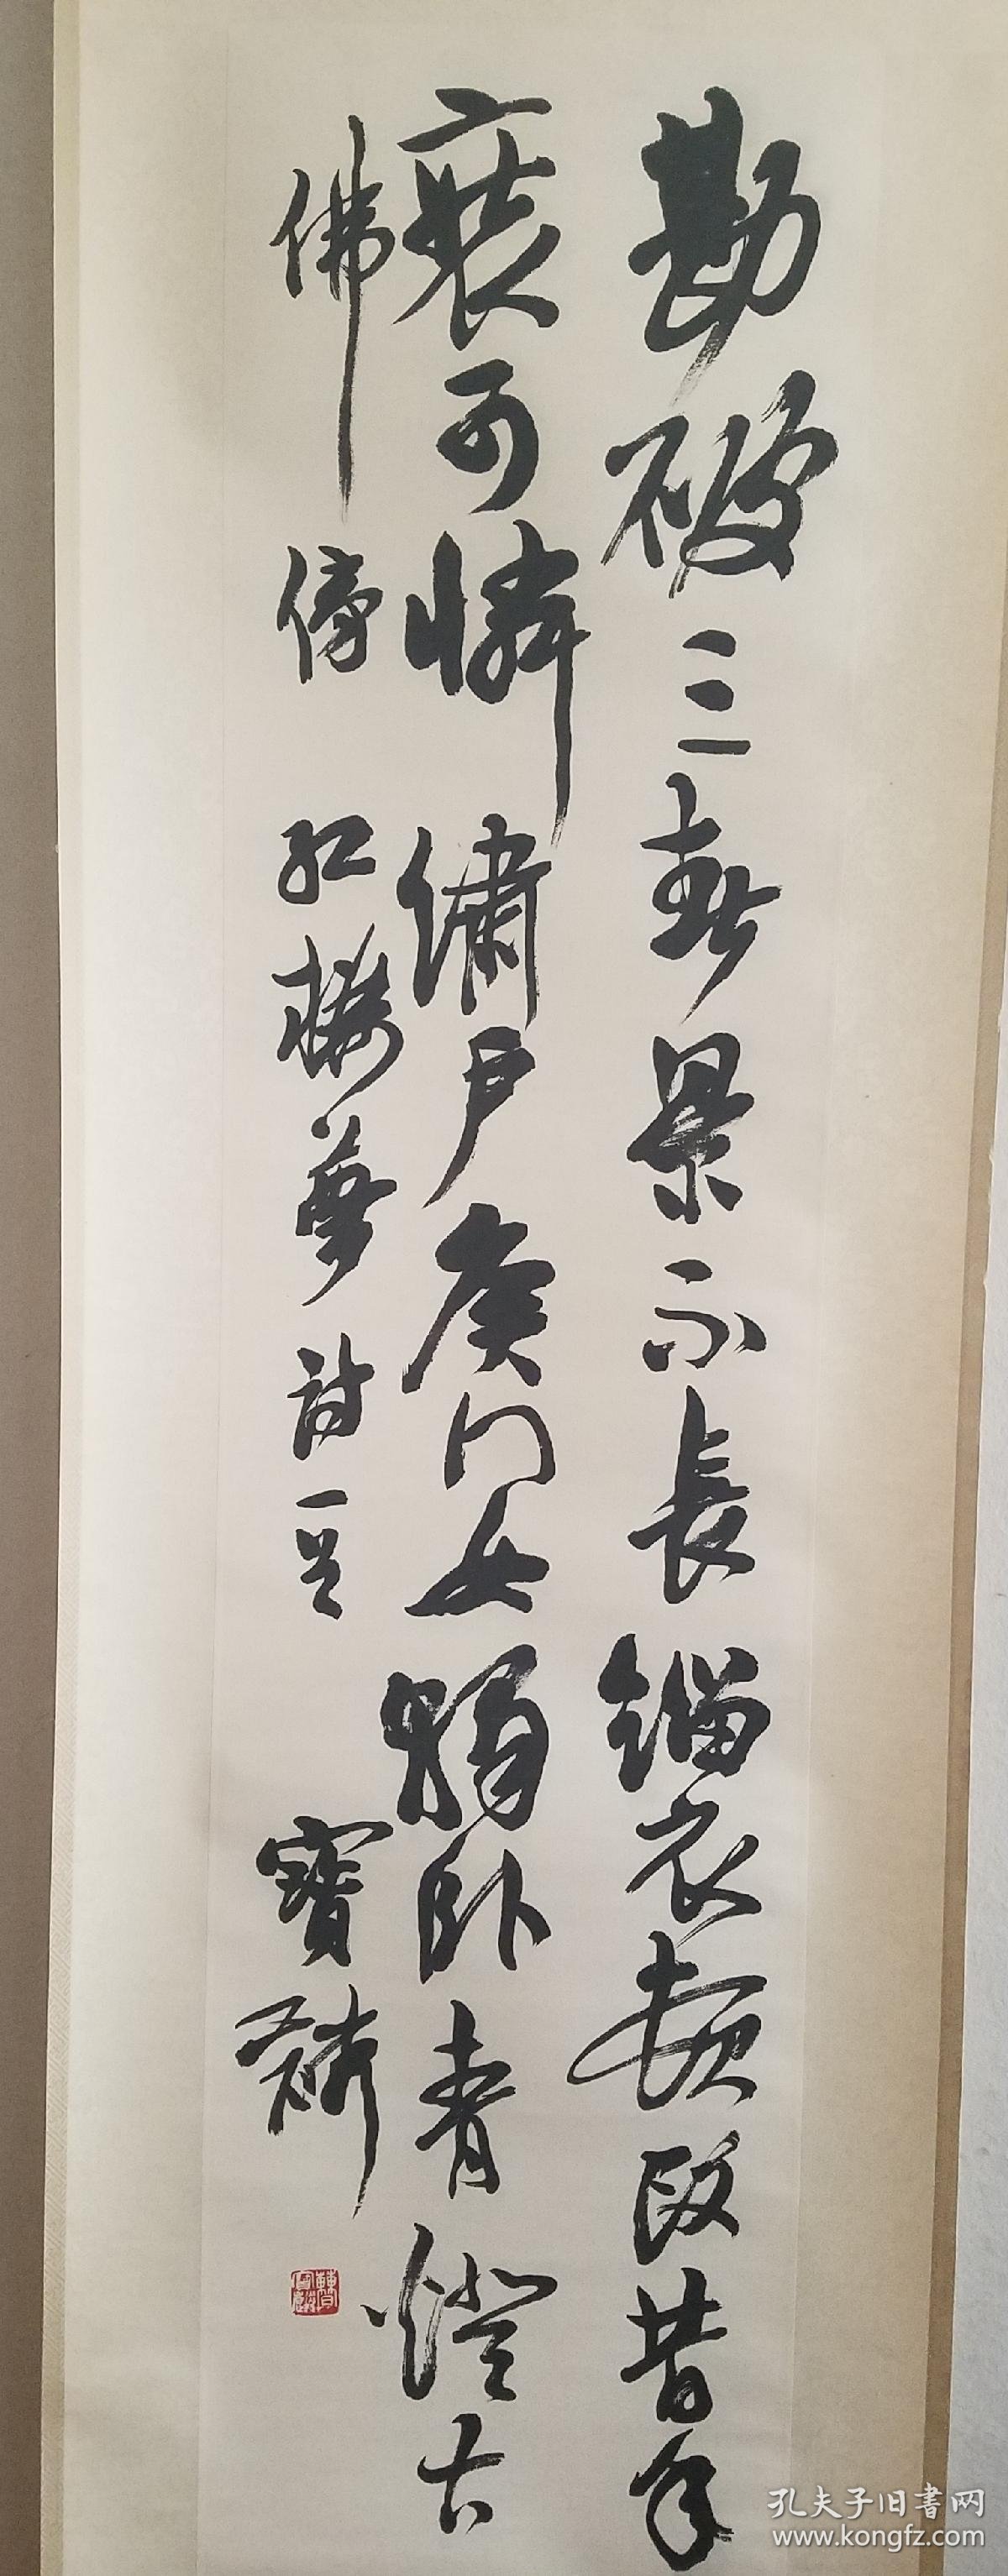 勘破三春景不長緇衣頓改昔年
裝可憐繡戶侯門女獨臥青燈古
佛傍 紅樓夢詩一首 寶
孔夫子旧書网
www.kongfz.com